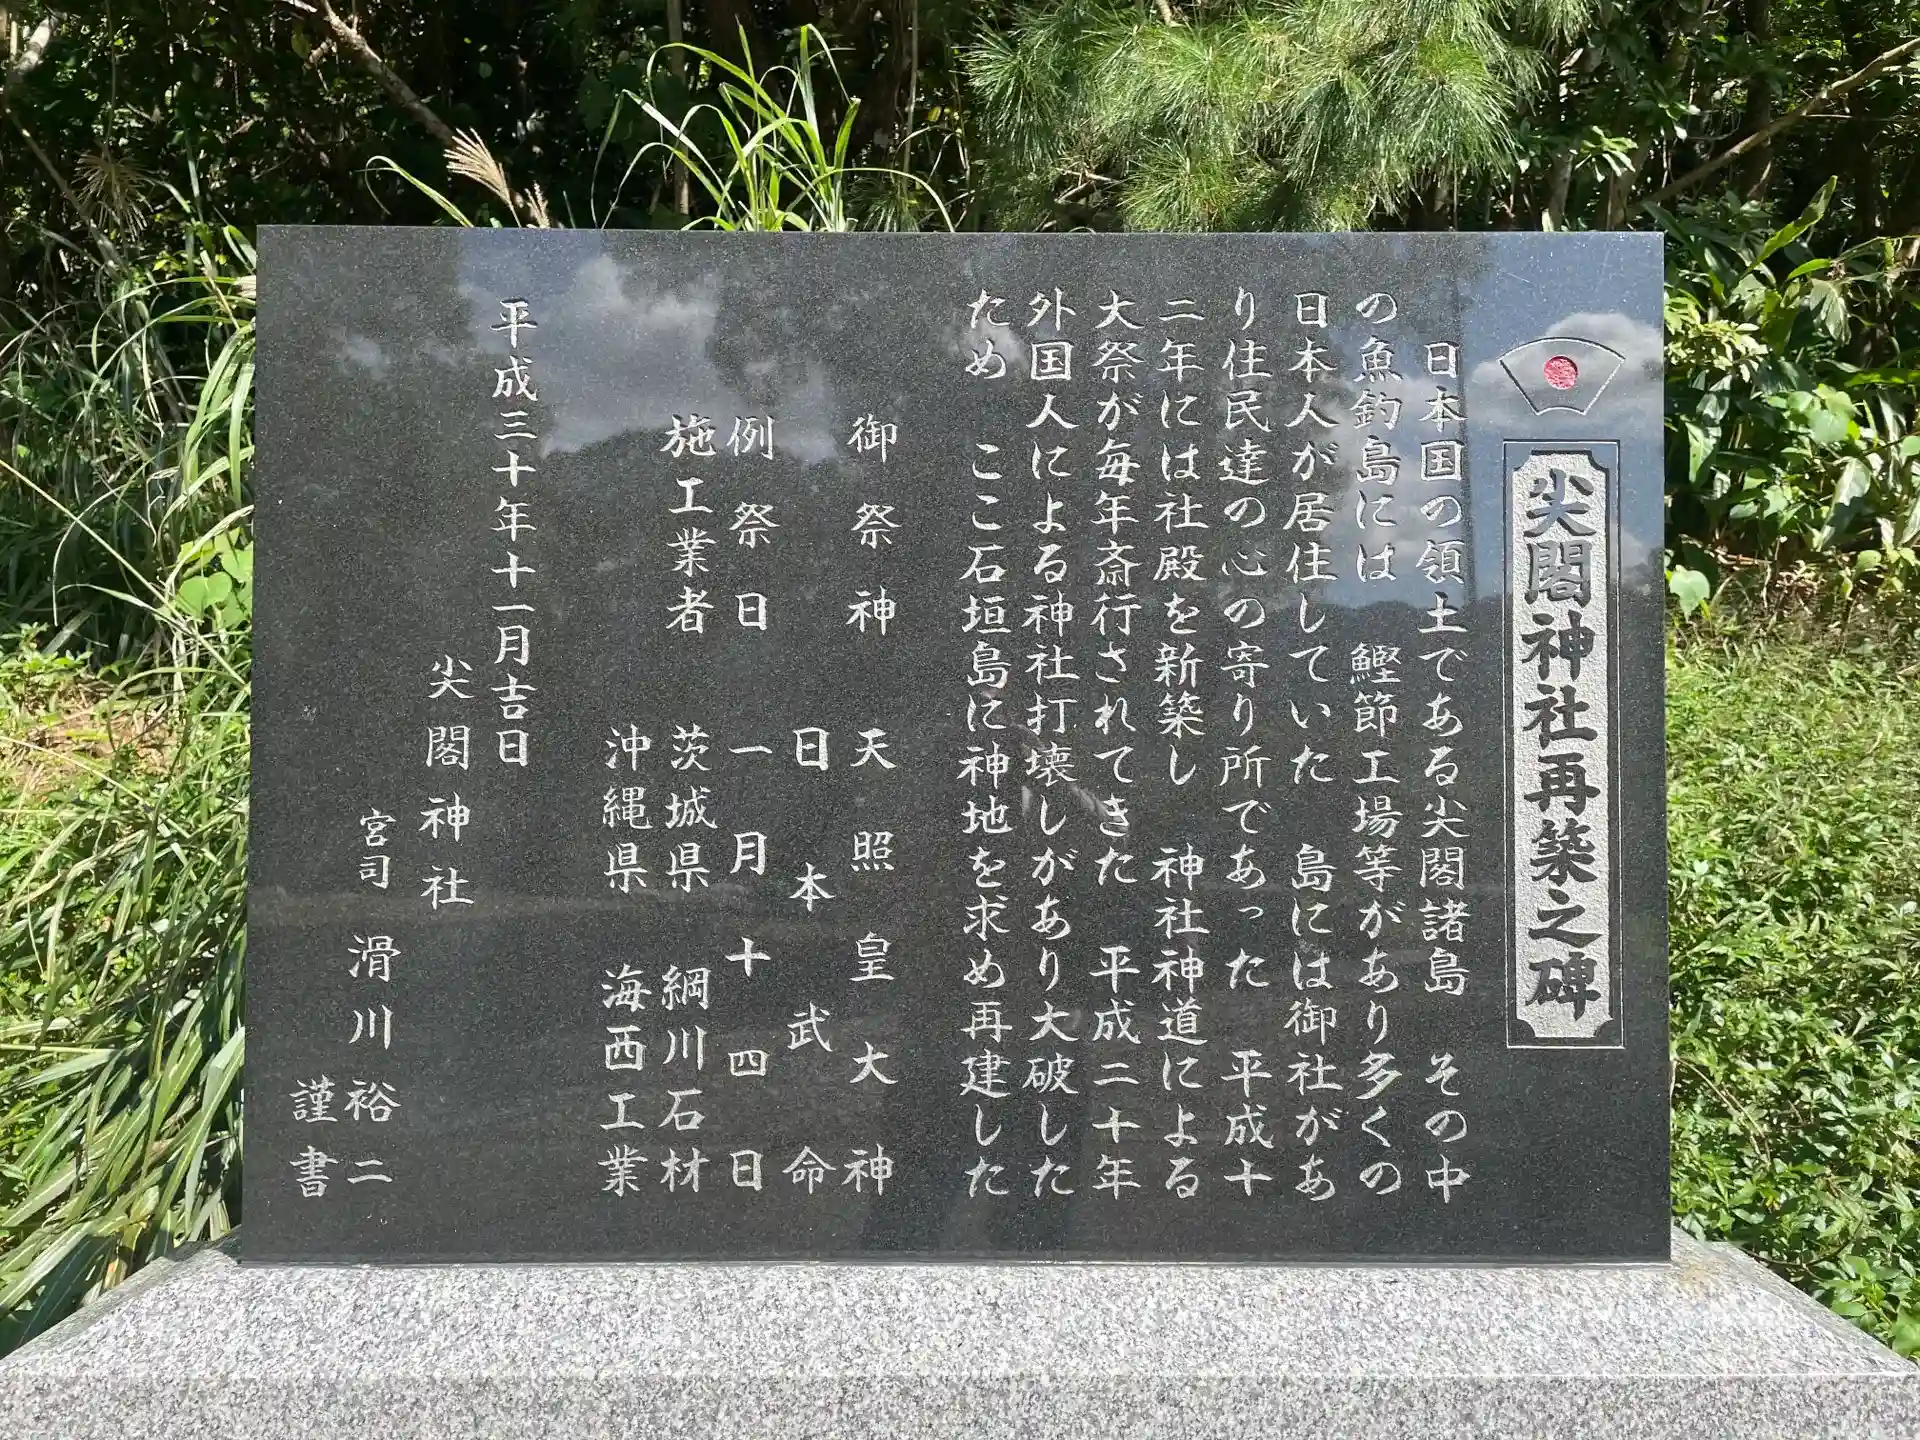 尖閣神社再築之碑
日本国の領土である尖閣諸島　その中
の魚釣島には　鰹節工場等があり多くの
日本人が居住していた　島には御社があ
り住民達の心の寄り所であった　平成十
二年には社殿を新築し　神社神道による
大祭が毎年斎行されてきた　平成二十年
外国人による神社打壊しがあり大破した
ため　ここ石垣島に神地を求め再建した
御祭神　天照皇大神
日本武命
例祭日　一月十四日
施工業者　茨城県　綱川石材
沖縄県　海西工業
平成三十年十一月吉日
尖閣神社
宮司　滑川裕二
謹書